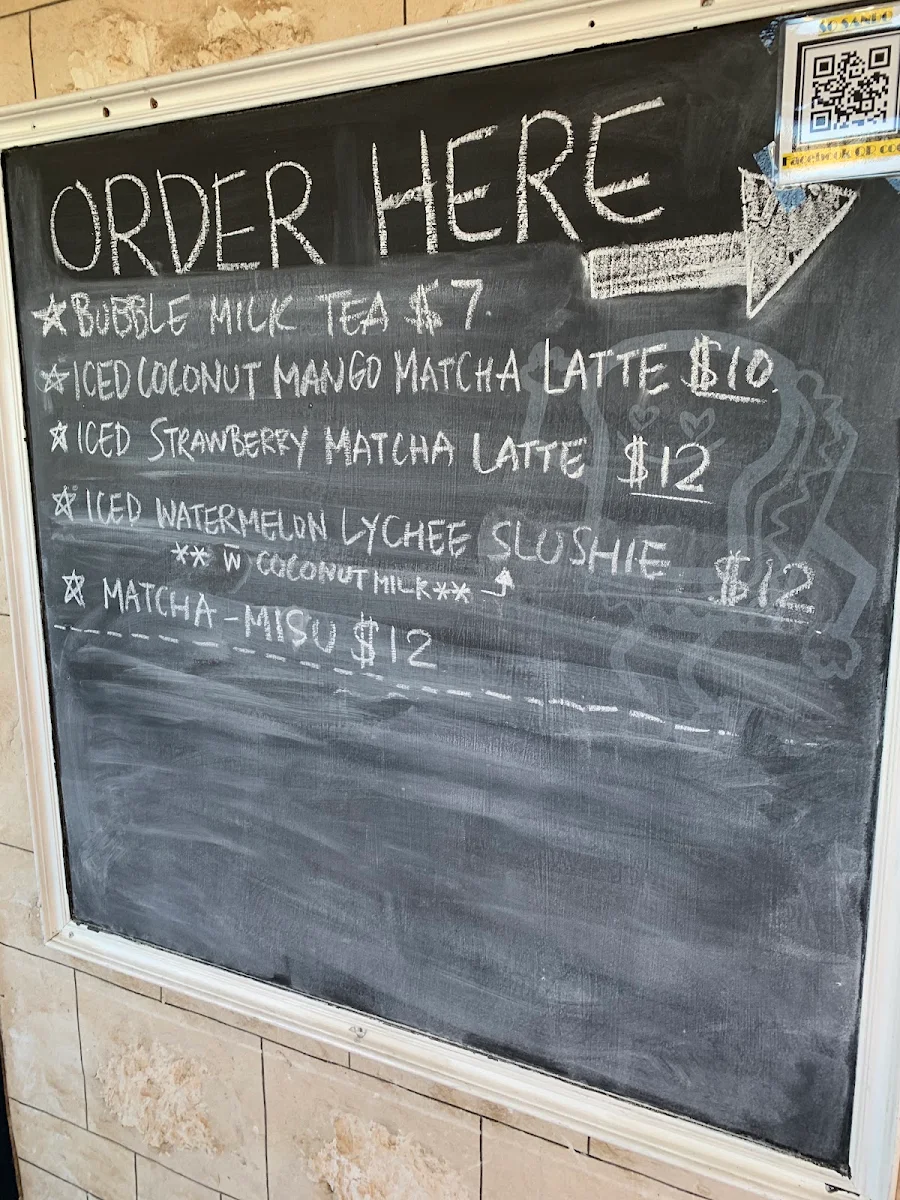 SO SANDO
Facebook QR co
ORDER HERE
BUBBLE MILK TEA $7.
ICED COCONUT MANGO MATCHA LATTE $10
ICED STRAWBERRY MATCHA LATTE $12
ICED WATERMELON LYCHEE SLUSHIE $12
** W COCONUT MILK **
MATCHA-MISU $12